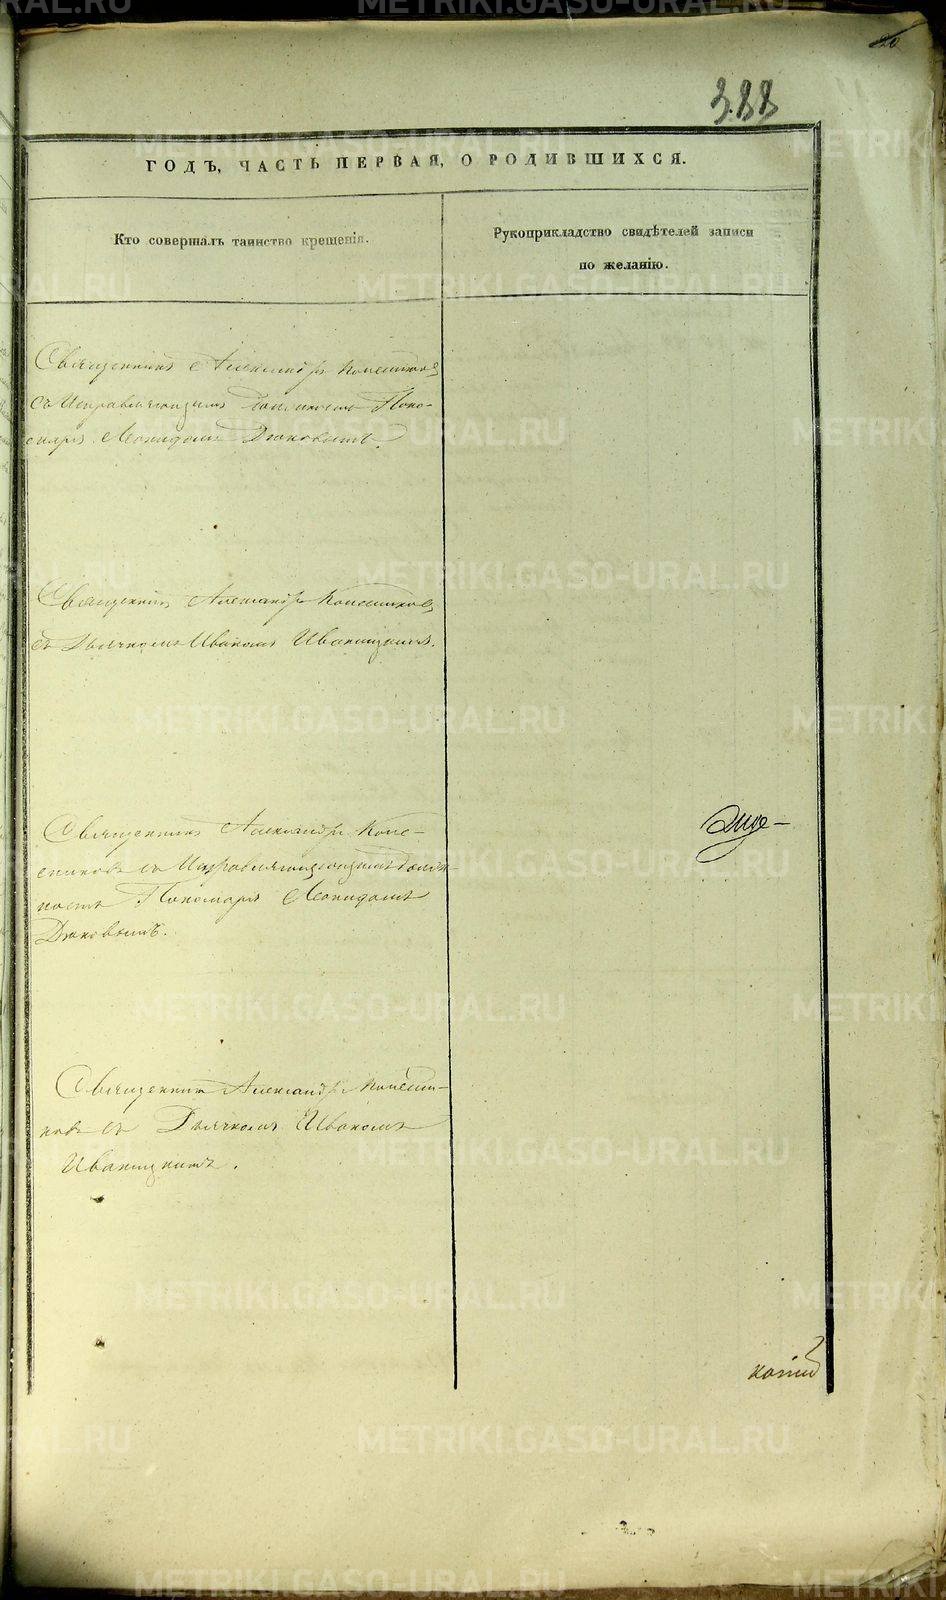 20
388
ГОДЪ, ЧАСТЬ ПЕРВАЯ, О РОДИВШИХСЯ.
Кто совершалъ таинство крещенія.
Рукоприкладство свидѣтелей записи
по желанію.
Священникъ Александръ
съ Исправляющимъ должность Поно-
маря Леонидомъ Дюковымъ.
Священникъ Александръ
съ Дьячкомъ Иваномъ Иваницкимъ.
Священникъ Александръ
съ Исправляющимъ долж-
ность Пономаря Леонидомъ
Дюковымъ.
Священникъ Александръ
съ Дьячкомъ Иваномъ
Иваницкимъ.
METRIKI.GASO-URAL.RU